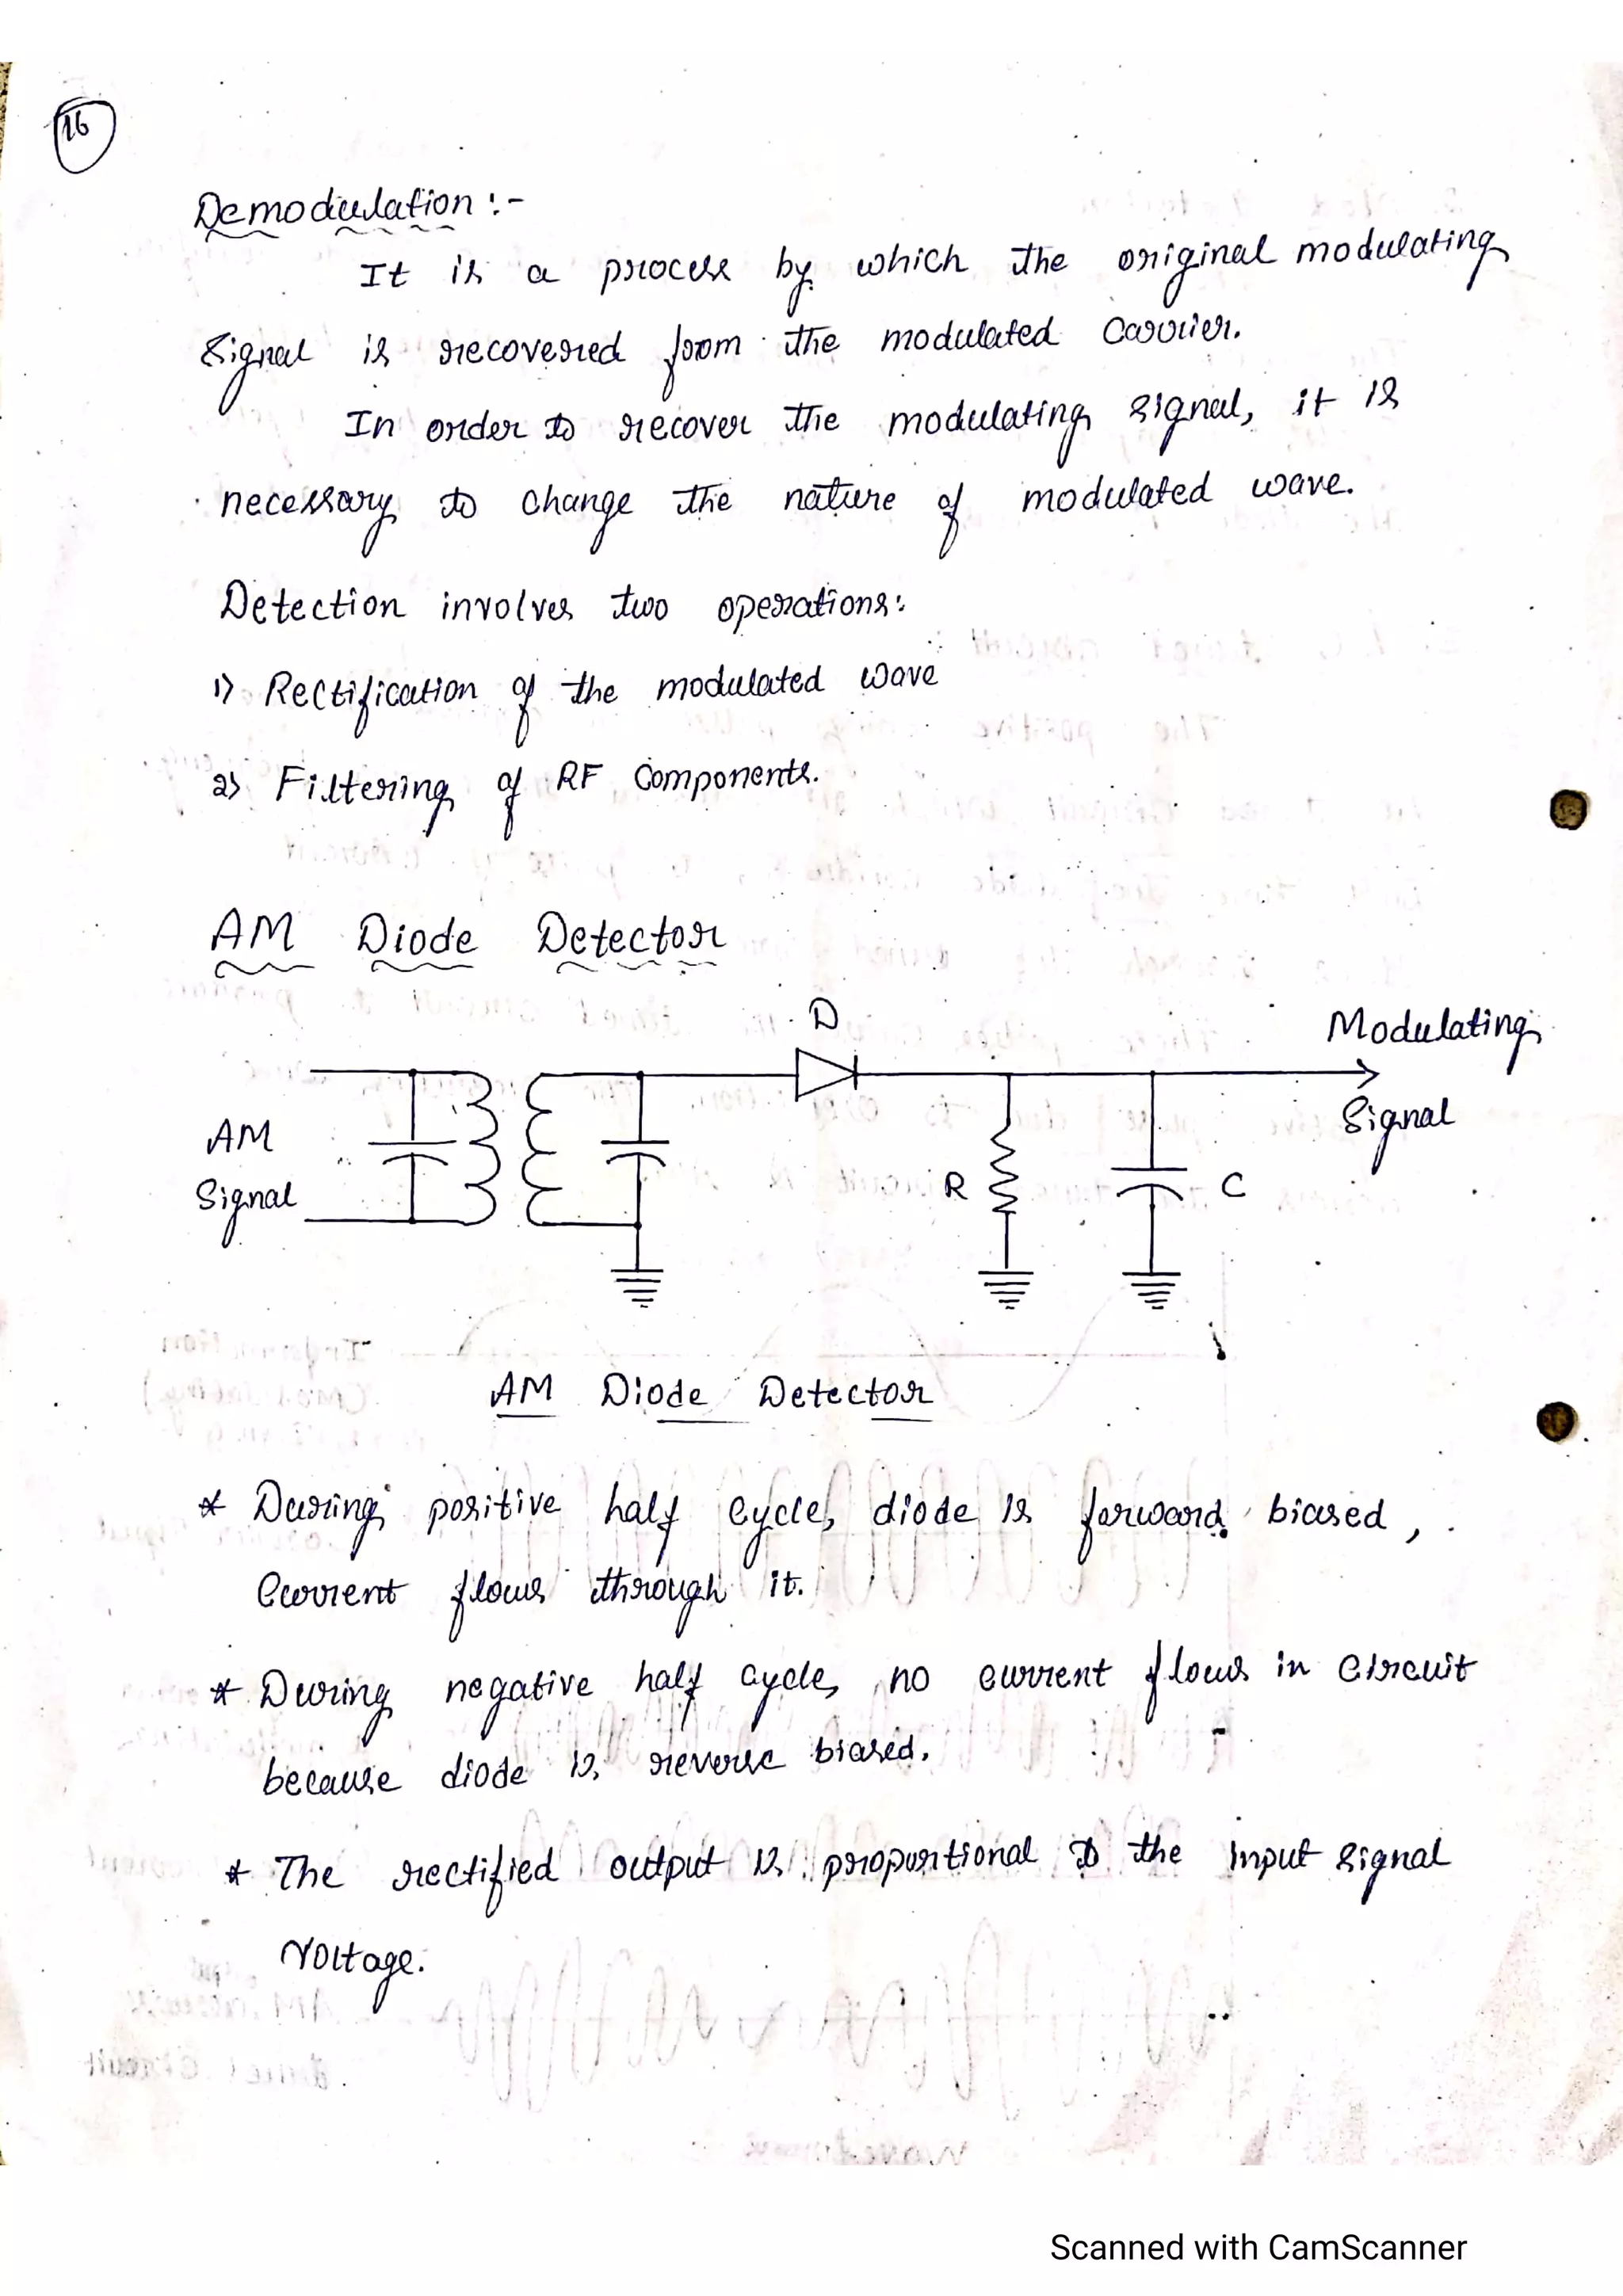 16
Demodulation :-
It is a process by which the original modulating
signal is recovered from the modulated carrier.
In order to recover the modulating signal, it is
necessary to change the nature of modulated wave.
Detection involves two operations:
1) Rectification of the modulated wave
2) Filtering of RF components.
AM Diode Detector
D
Modulating
Signal
AM
Signal
R
C
AM Diode Detector
* During positive half cycle, diode is forward biased,
current flows through it.
* During negative half cycle, no current flows in circuit
because diode is reverse biased.
* The rectified output is proportional to the input signal
voltage.
Scanned with CamScanner